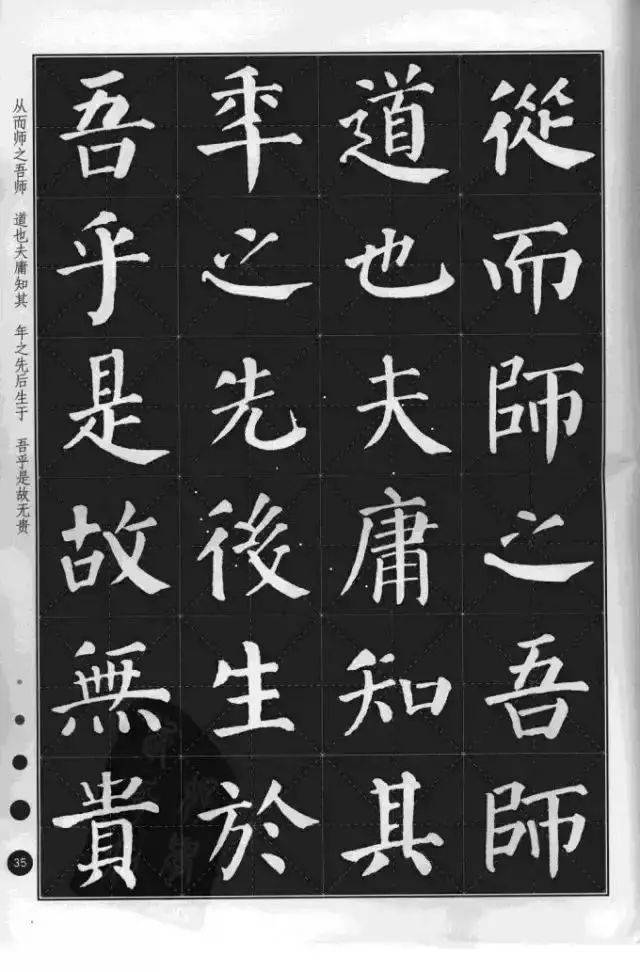 從而師之吾師
道也夫庸知其
年之先後生於
吾乎是故無貴
从而师之吾师 道也夫庸知其 年之先后生于 吾乎是故无贵
35